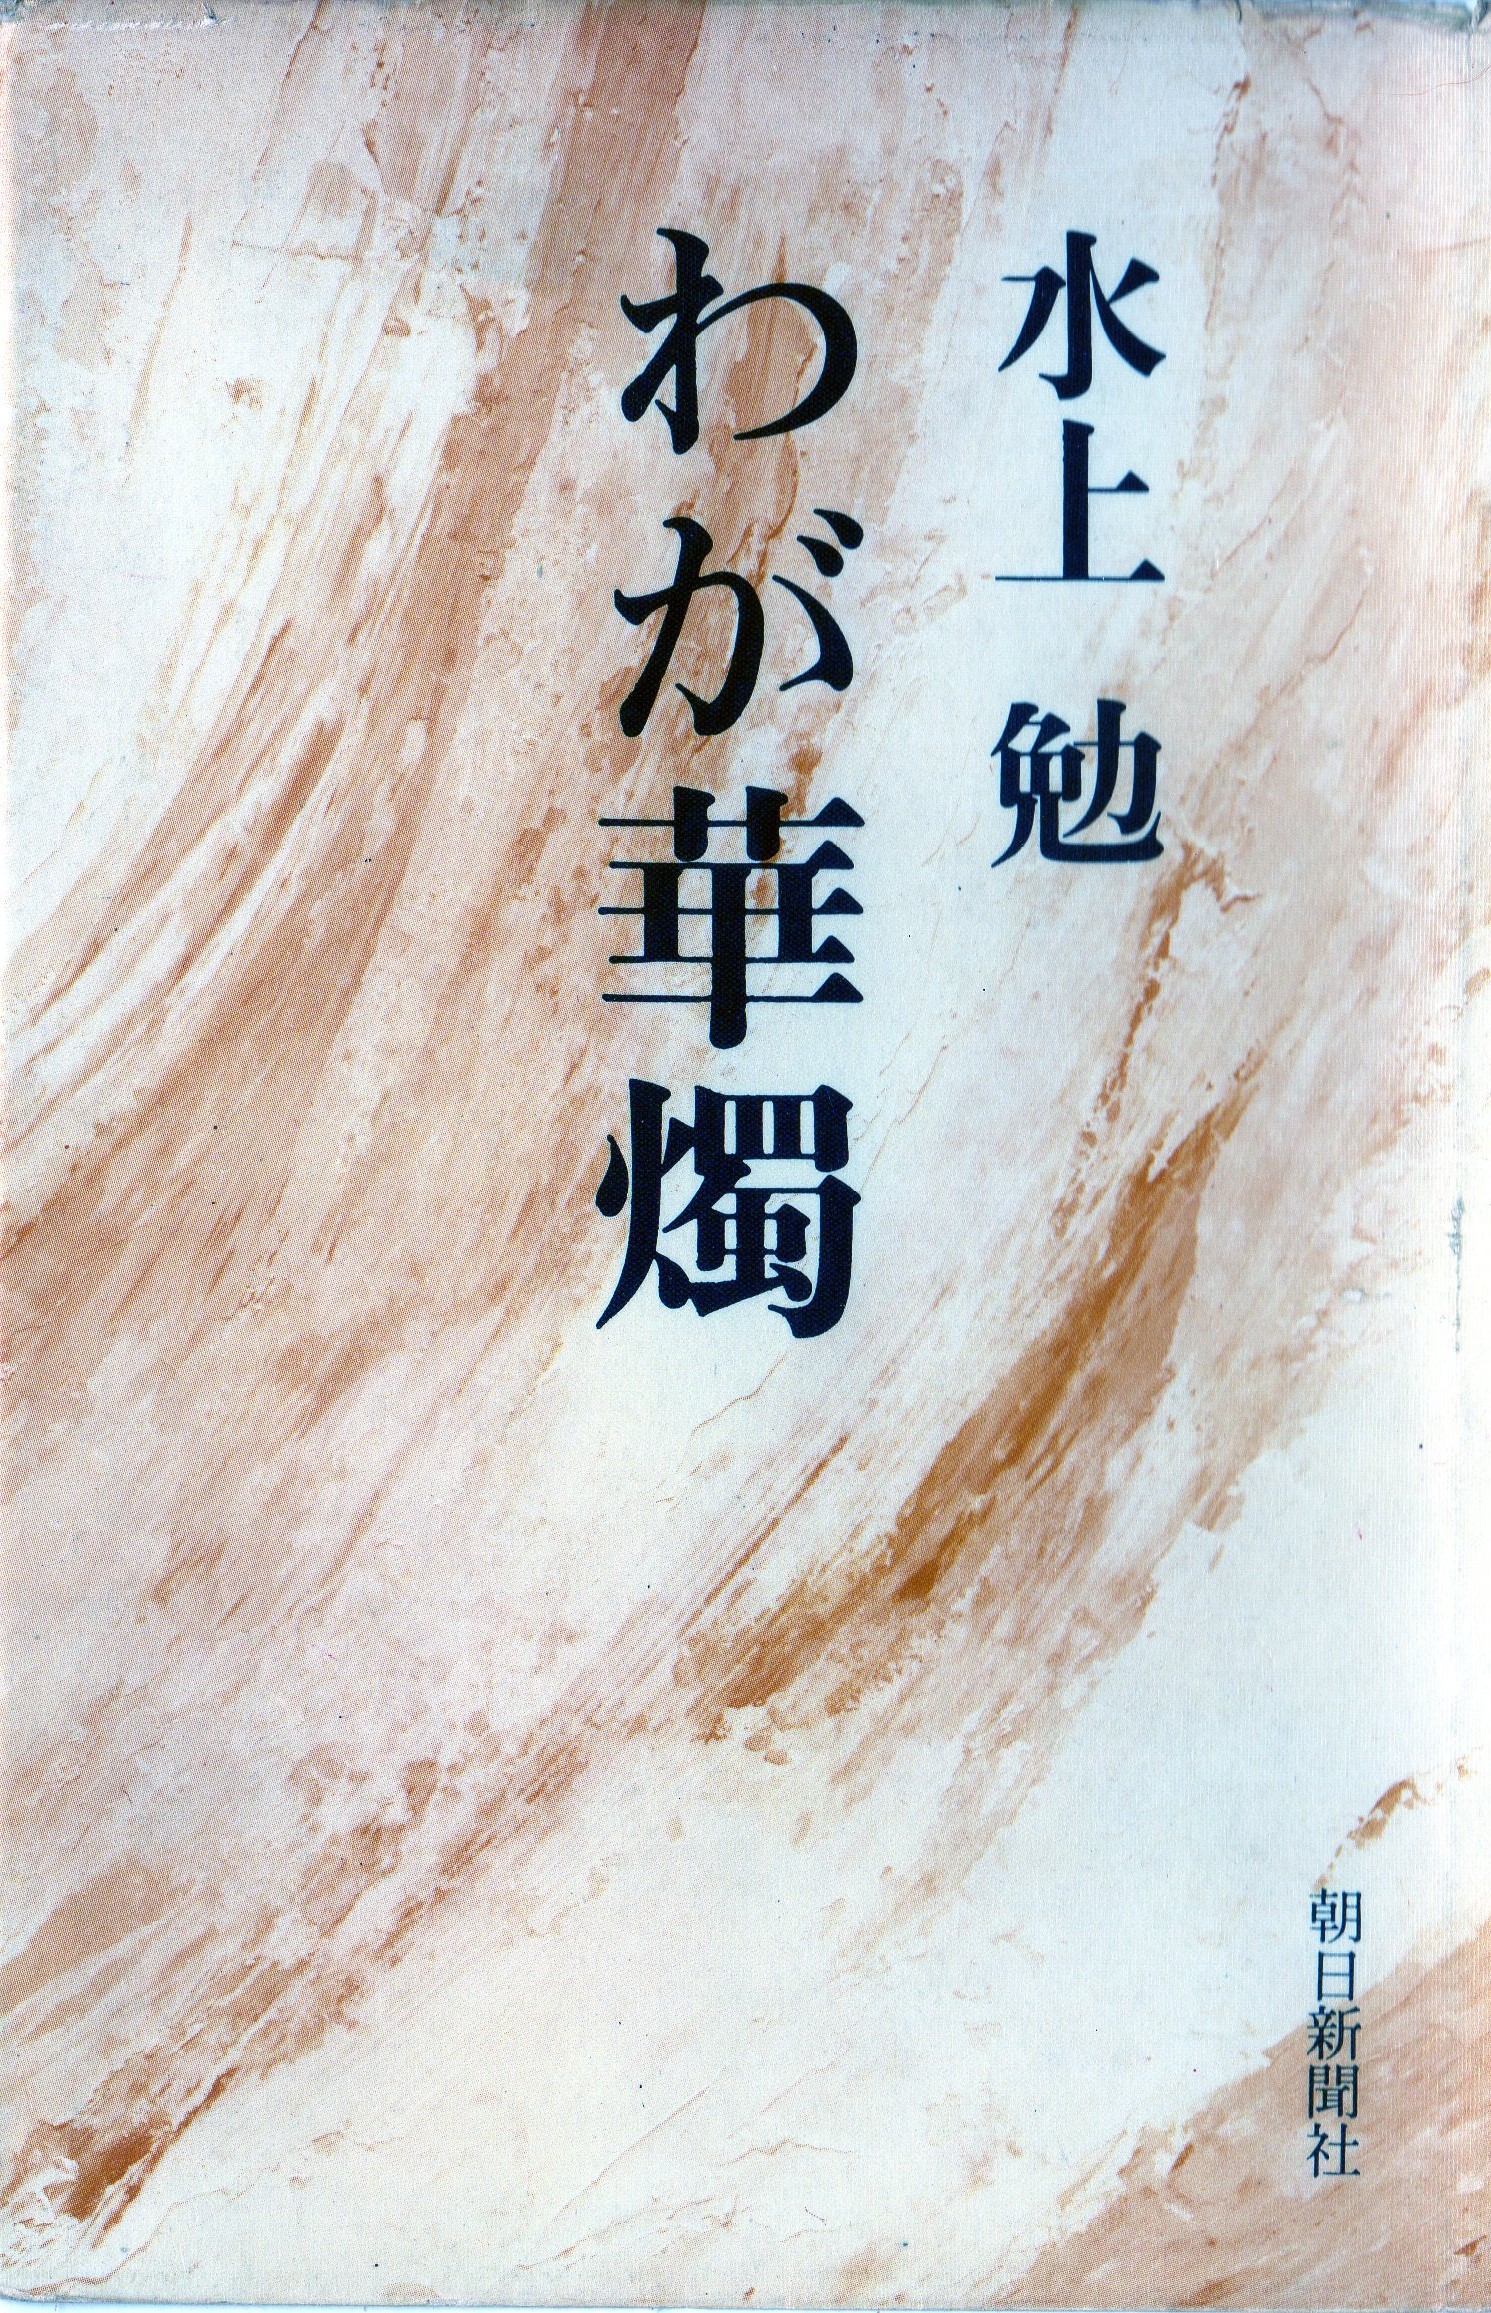 水上 勉
わが華燭
朝日新聞社